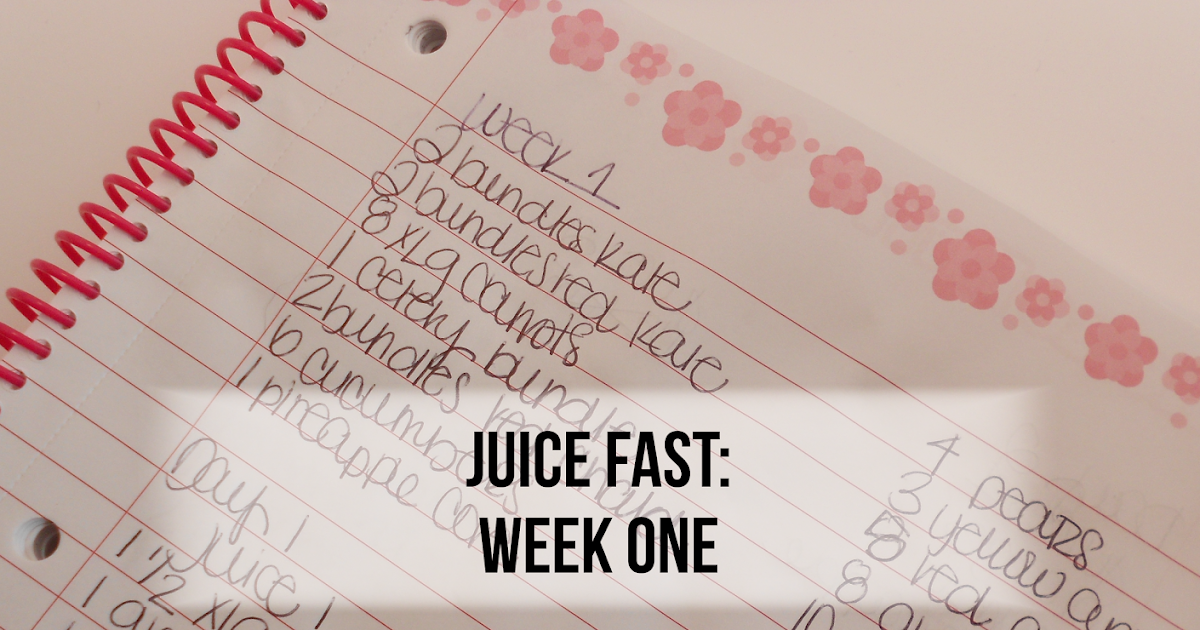 Week 1
2 bundles kale
2 bundles red kale
8 xLg carrots
1 celery bundle
2 bundles red
6 cucumbers
1 pineapple
Day 1
Juice 1
1 1/2 xLg
1
4 pears
3 yellow
5 red
8
10
JUICE FAST:
WEEK ONE